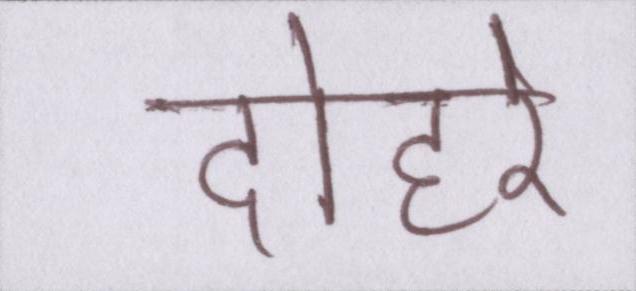 दोहरे